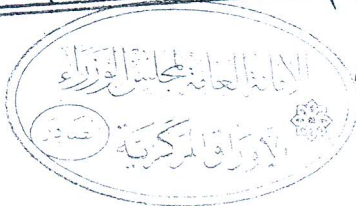 الأمانة العامة لمجلس الوزراء
الأوراق المركزية
صادر